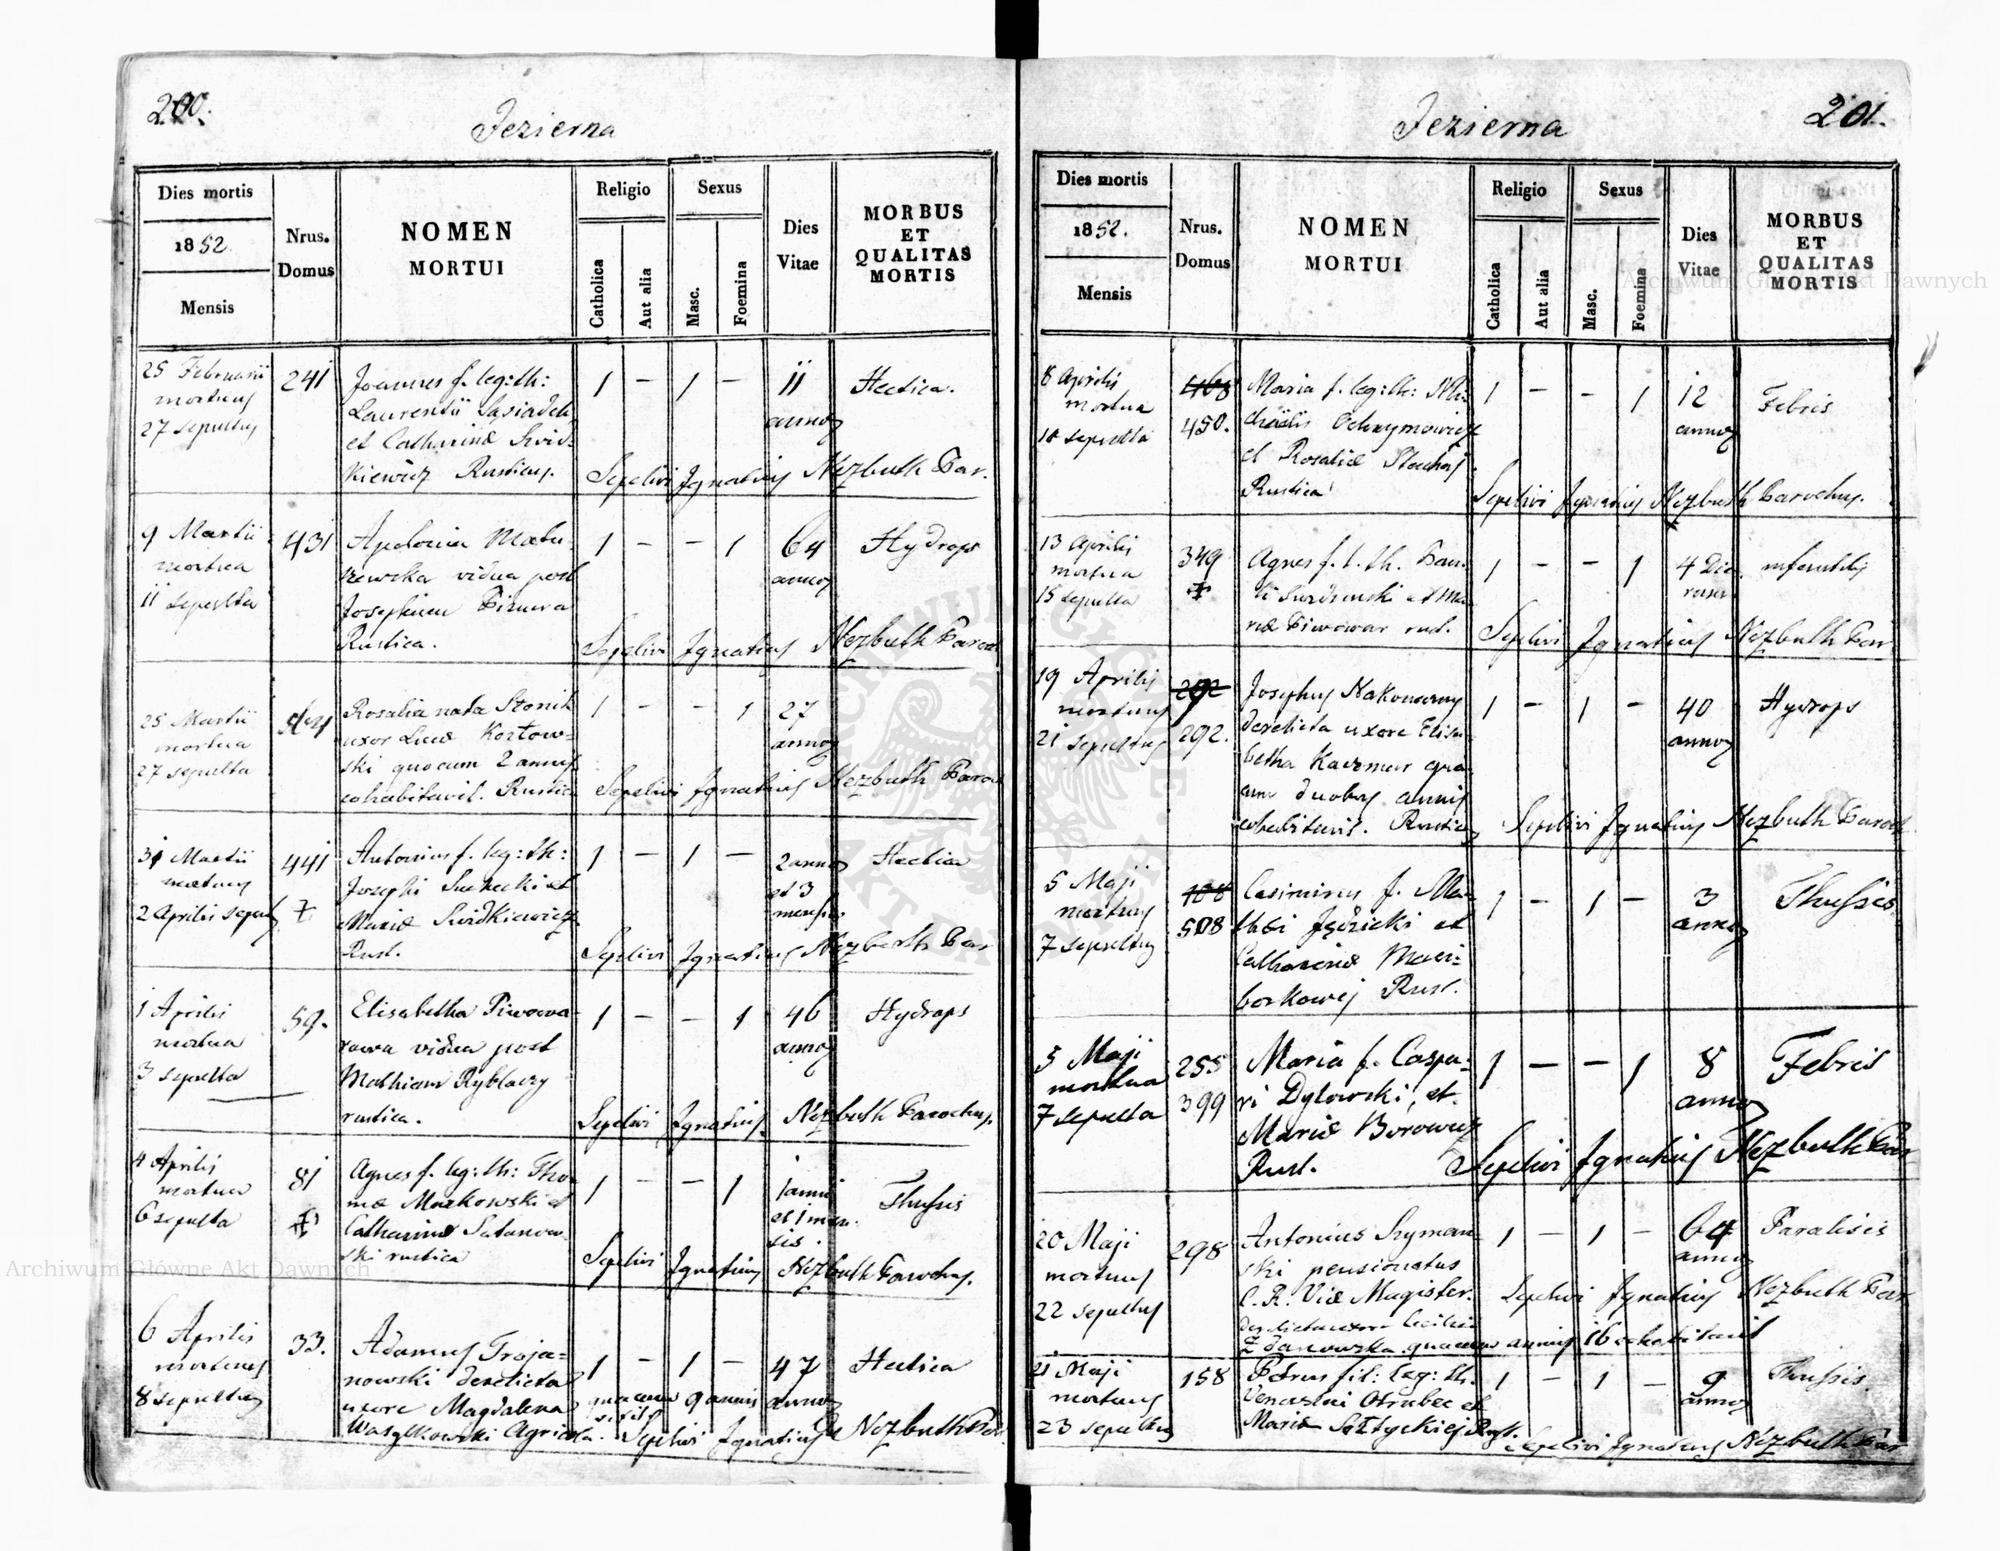 200.
Jezierna
Dies mortis
1852.
Mensis
Nrus.
Domus
NOMEN
MORTUI
Religio
Catholica
Aut alia
Sexus
Masc.
Foemina
Dies
Vitae
MORBUS
ET
QUALITAS
MORTIS
25 Februarii
mortuus
27 sepultus
241
Joannes f. leg: th:
Laurentii Sąsiadek
et Catharinæ Swid=
kiewicz Rusticus.
1 – 1 –
11
annos
Hectica.
Sepelivi Ignatius Nezbuth Par.
9 Martii
mortua
11 sepulta
431
Apolonia Matu=
szewska vidua post
Josephum
Rustica.
1 – – 1
64
annos
Hydrops
Sepelivi Ignatius Nezbuth Paroc
25 Martii
mortua
27 sepulta
Rosalia nata
uxor Lucæ Kozłow=
ski quocum 2 annis
cohabitavit. Rustica
1 – – 1
27
annos
Sepelivi Ignatius Nezbuth Paroc
31 Martii
mortuus
2 Aprilis sepul
441
Antonius f. leg: th:
Josephi et
Mariæ Swidkiewicz
Rust.
1 – 1 –
2 annos
et 3
menses
Hectica
Sepelivi Ignatius Nezbuth Par
1 Aprilis
mortua
3 sepulta
59.
Elisabetha Piwowa
rowa vidua post
Mathiam Rybłaczy
rustica.
1 – – 1
46
annos
Hydrops
Sepelivi Ignatius Nezbuth Parochus.
4 Aprilis
mortua
6 sepulta
81
Agnes f. leg: th: Tho
mæ Markowski et
Catharinæ Satanow
ski rustica
1 – – 1
1 anni
et 1 men
sis.
Thussis
Sepelivi Ignatius Nezbuth Parochus.
6 Aprilis
mortuus
8 sepultus
33.
Adamus Troja=
nowski derelicta
uxore Magdalena
Wasylkowski Agricola.
quacum 9 annis
vixit
1 – 1 –
47
annos
Hectica
Sepelivi Ignatius Nezbuth Par
201.
Jezierna
Dies mortis
1852.
Mensis
Nrus.
Domus
NOMEN
MORTUI
Religio
Catholica
Aut alia
Sexus
Masc.
Foemina
Dies
Vitae
MORBUS
ET
QUALITAS
MORTIS
8 Aprilis
mortua
10 sepulta
468
450.
Maria f. leg: th: Mi
chaëlis Ochrymowicz
et Rosaliæ Stachaj
Rustica
1 – – 1
12
annos
Febris
Sepelivi Ignatius Nezbuth Parochus.
13 Aprilis
mortua
15 sepulta
349
Agnes f. l. th. Pau
li et Ma
riæ Piwowar rust.
1 – – 1
4 Die
rum
infantilis
Sepelivi Ignatius Nezbuth Par
19 Aprilis
mortuus
21 sepultus
292
292.
Josephus Nakoneczny
derelicta uxore Elisa
betha Kaczmar qua
cum duobus annis
cohabitavit. Rusticus
1 – 1 –
40
annos
Hydrops
Sepelivi Ignatius Nezbuth Paroch
5 Maji
mortuus
7 sepultus
108
508
Casimirus f. Ma
thei Jędzicki et
Catharinæ
borkowej Rust.
1 – 1 –
3
annos
Thussis
5 Maji
mortua
7 sepulta
255
399
Maria f. Caspa=
ri Dylowski, et
Mariæ Borowicz
Rust.
1 – – 1
8
annos
Febris
Sepelivi Ignatius Nezbuth Par
20 Maji
mortuus
22 sepultus
298
Antonius Szyman
ski pensionatus
C. R. Viæ Magister.
derelicta uxore Cecilia
Zdanowska quacum annis 16 cohabitavit
1 – 1 –
64
annos
Paralisis
Sepelivi Ignatius Nezbuth Par
21 Maji
mortuus
23 sepultus
158
Petrus fil: leg: th.
Venceslai Otrubec et
Mariæ Sałtyckiej Rust.
1 – 1 –
9
annos
Thussis.
Sepelivi Ignatius Nezbuth Par
Archiwum Główne Akt Dawnych
Archiwum Główne Akt Dawnych